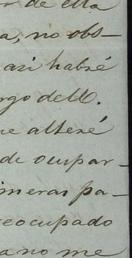 de ella
a, no obs-
asi habré
rgo del C.
e alteré
de ocupar-
imeras pa-
reocupado
a no me